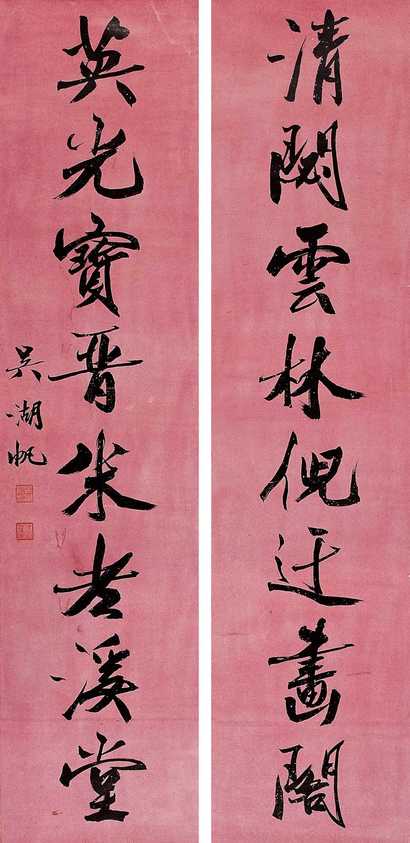 清閟雲林倪迂畫閣
英光寶晉米老溪堂
吳湖帆